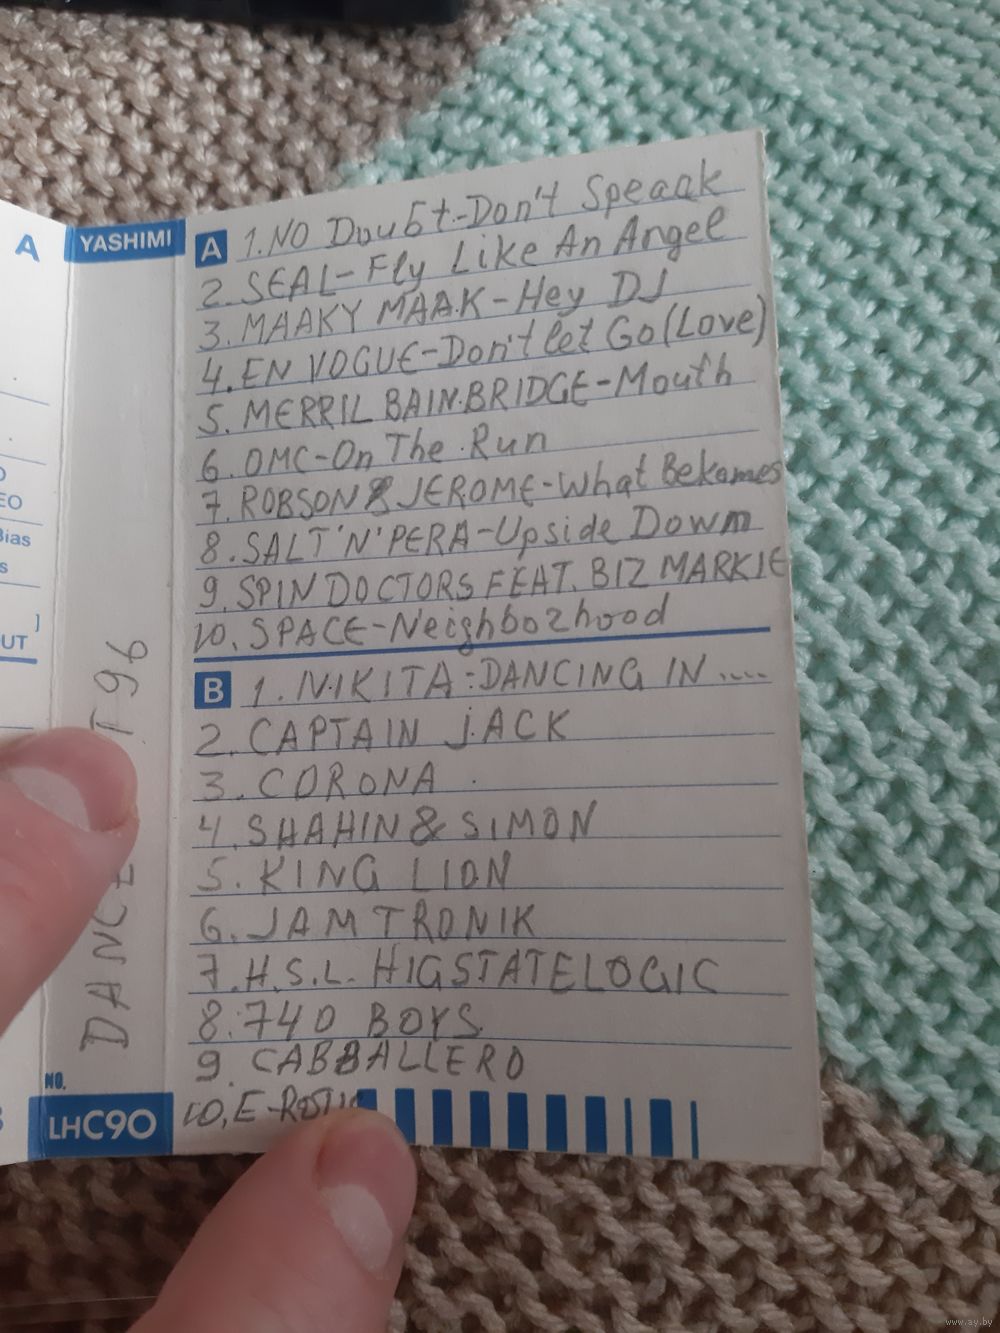 A
YASHIMI
A
1. NO Doubt-Don't Speaak
2. SEAL-Fly Like An Angel
3. MAAKY MAAK-Hey DJ
4. EN VOGUE-Don't let Go (Love)
5. MERRIL BAIN.BRIDGE-Mouth
6. OMC-On The Run
7. ROBSON & JEROME-What Bekomes
8. SALT'N'PERA-Upside Dowm
9. SPIN DOCTORS FEAT. BIZ MARKIE
10. SPACE-Neighborhood
B
1. NIKITA:DANCING IN ....
2. CAPTAIN JACK
3. CORONA
4. SHAHIN & SIMON
5. KING LION
6. JAM TRONIK
7. H.S.L. HIGSTATELOGIC
8. 740 BOYS
9. CABBALLERO
10. E-ROTIC
EO
Bias
s
]
UT
DANCE
T 96
NO.
LHC90
www.ay.by